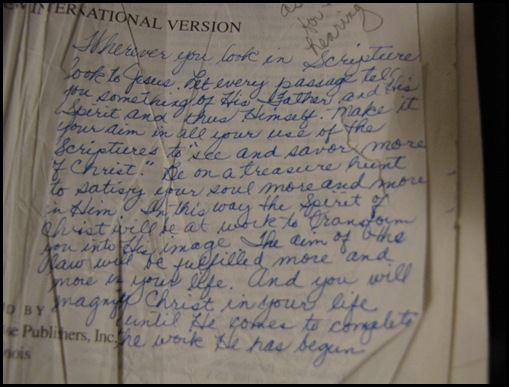 N INTERNATIONAL VERSION
for
hearing
Wherever you look in Scripture
look to Jesus. Let every passage tell
you something of His Father and His
Spirit and thus Himself. Make it
your aim in all your use of the
Scriptures to "see and savor more
of Christ." Be on a treasure hunt
to satisfy your soul more and more
in Him. In this way the Spirit of
Christ will be at work to transform
you into His image. The aim of
law will be fulfilled more and
more in your life. And you will
magnify Christ in your life
until He comes to complete
the work He has begun
D BY
Publishers, Inc.
nois